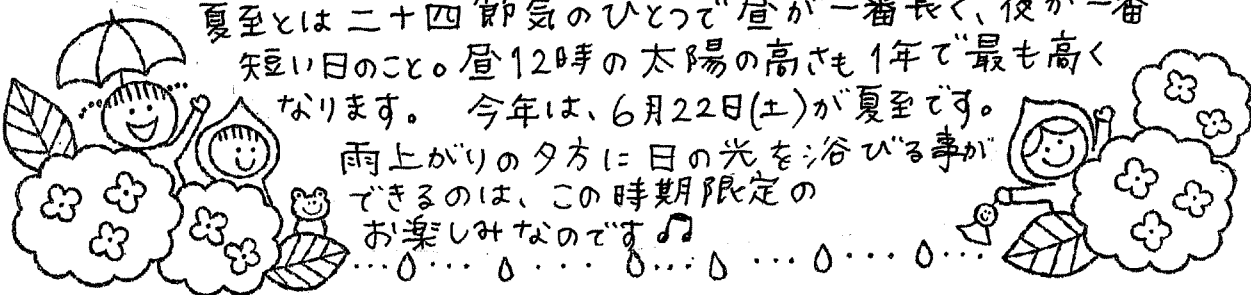 夏至とは二十四節気のひとつで昼が一番長く、夜が一番
短い日のこと。昼12時の太陽の高さも1年で最も高く
なります。 今年は、6月22日(土)が夏至です。
雨上がりの夕方に日の光を浴びる事が
できるのは、この時期限定の
お楽しみなのです♫